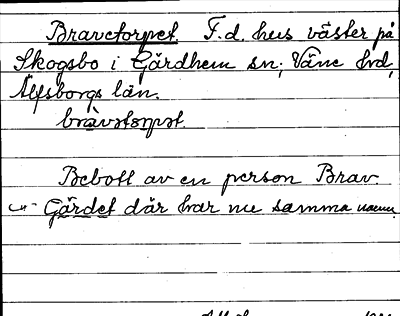 Bravetorpet. F.d. hus väster på
Skogsbo i Gärdhem sn; Väne hd,
Älfsborgs län.
bràvətɔrpət.
Bebott av en person Brav.
Gärdet där har nu samma namn